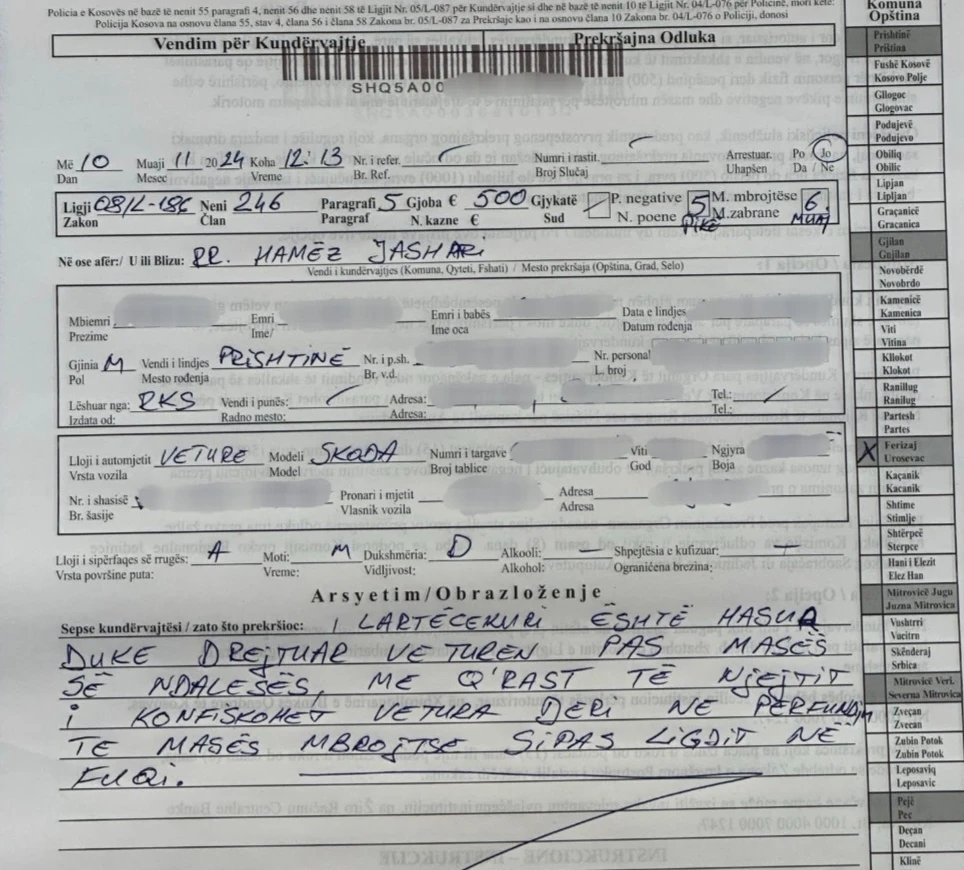 Policia e Kosovës në bazë të nenit 55 paragrafi 4, nenit 56 dhe nenit 58 të Ligjit Nr. 05/L-087 për Kundërvajtje si dhe në bazë të nenit 10 të Ligjit Nr. 04/L-076 për Policinë, mori këtë:
Policija Kosova na osnovu člana 55, stav 4, člana 56 i člana 58 Zakona br. 05/L-087 za Prekršaje kao i na osnovu člana 10 Zakona br. 04/L-076 o Policiji, donosi
Vendim për Kundërvajtje Prekršajna Odluka
SHQ5A00
Më 10 Muaji 11 2024 Koha 12.13 Nr. i refer. Numri i rastit. Arrestuar. Po / Jo
Dan Mesec Vreme Br. Ref. Broj Slučaj Uhapšen Da / Ne
Ligji 08/L-186 Neni 246 Paragrafi 5 Gjoba € 500 Gjykatë P. negative 5 M. mbrojtëse 6
Zakon Član Paragraf N. kazne € Sud N. poene PIKË M.zabrane MUAJ
Në ose afër:/ U ili Blizu: RR. HAMËZ JASHARI
Vendi i kundërvajtjes (Komuna, Qyteti, Fshati) / Mesto prekršaja (Opština, Grad, Selo)
Mbiemri Emri Emri i babës Data e lindjes
Prezime Ime/ Ime oca Datum rođenja
Gjinia M Vendi i lindjes PRISHTINË Nr. i p.sh. Nr. personal
Pol Mesto rođenja Br. v.d. L. broj
Lëshuar nga: RKS Vendi i punës: Adresa: Tel.:
Izdata od: Radno mesto: Adresa: Tel.:
Lloji i automjetit VETURE Modeli SKODA Numri i targave Viti Ngjyra
Vrsta vozila Model Broj tablice God Boja
Nr. i shasisë Pronari i mjetit Adresa
Br. šasije Vlasnik vozila Adresa
Lloji i sipërfaqes së rrugës: A Moti: M Dukshmëria: D Alkooli: — Shpejtësia e kufizuar: —
Vrsta površine puta: Vreme: Vidljivost: Alkohol: Ograničena brezina:
Arsyetim/Obrazloženje
Sepse kundërvajtësi / zato što prekršioc: I LARTËCEKURI ËSHTË HASUR
DUKE DREJTUAR VETUREN PAS MASËS
SË NDALESËS, ME Q'RAST TË NJEJTIT
I KONFISKOHET VETURA DERI NE PERFUNDIM
TE MASËS MBROJTSE SIPAS LIGJIT NË
FUQI.
Komuna
Opština
Prishtinë
Priština
Fushë Kosovë
Kosovo Polje
Gllogoc
Glogovac
Podujevë
Podujevo
Obiliq
Obilic
Lipjan
Lipljan
Graçanicë
Gracanica
Gjilan
Gnjilan
Novobërdë
Novobrdo
Kamenicë
Kamenica
Viti
Vitina
Kllokot
Klokot
Ranillug
Ranilug
Partesh
Partes
X Ferizaj
Urosevac
Kaçanik
Kacanik
Shtime
Stimlje
Shtërpcë
Sterpce
Hani i Elezit
Elez Han
Mitrovicë Jugu
Juzna Mitrovica
Vushtrri
Vucitrn
Skënderaj
Srbica
Mitrovicë Veri.
Severna Mitrovica
Zveçan
Zvecan
Zubin Potok
Zubin Potok
Leposaviq
Leposavic
Pejë
Pec
Deçan
Decani
Klinë